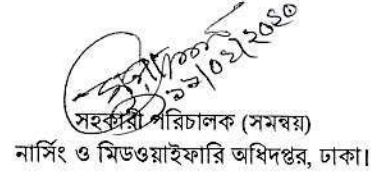 সহকারী পরিচালক (সমন্বয়)
নার্সিং ও মিডওয়াইফারি অধিদপ্তর, ঢাকা।